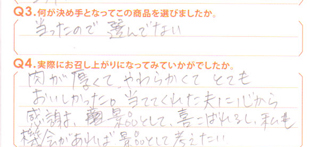 Q3.何が決め手となってこの商品を選びましたか。
当ったので 選んでない
Q4.実際にお召し上がりになってみていかがでしたか。
肉が厚くて、やわらかくて とても
おいしかった。当ててくれた夫に心から
感謝す。景品として、喜こばれるし、私も
機会があれば景品として考えたい